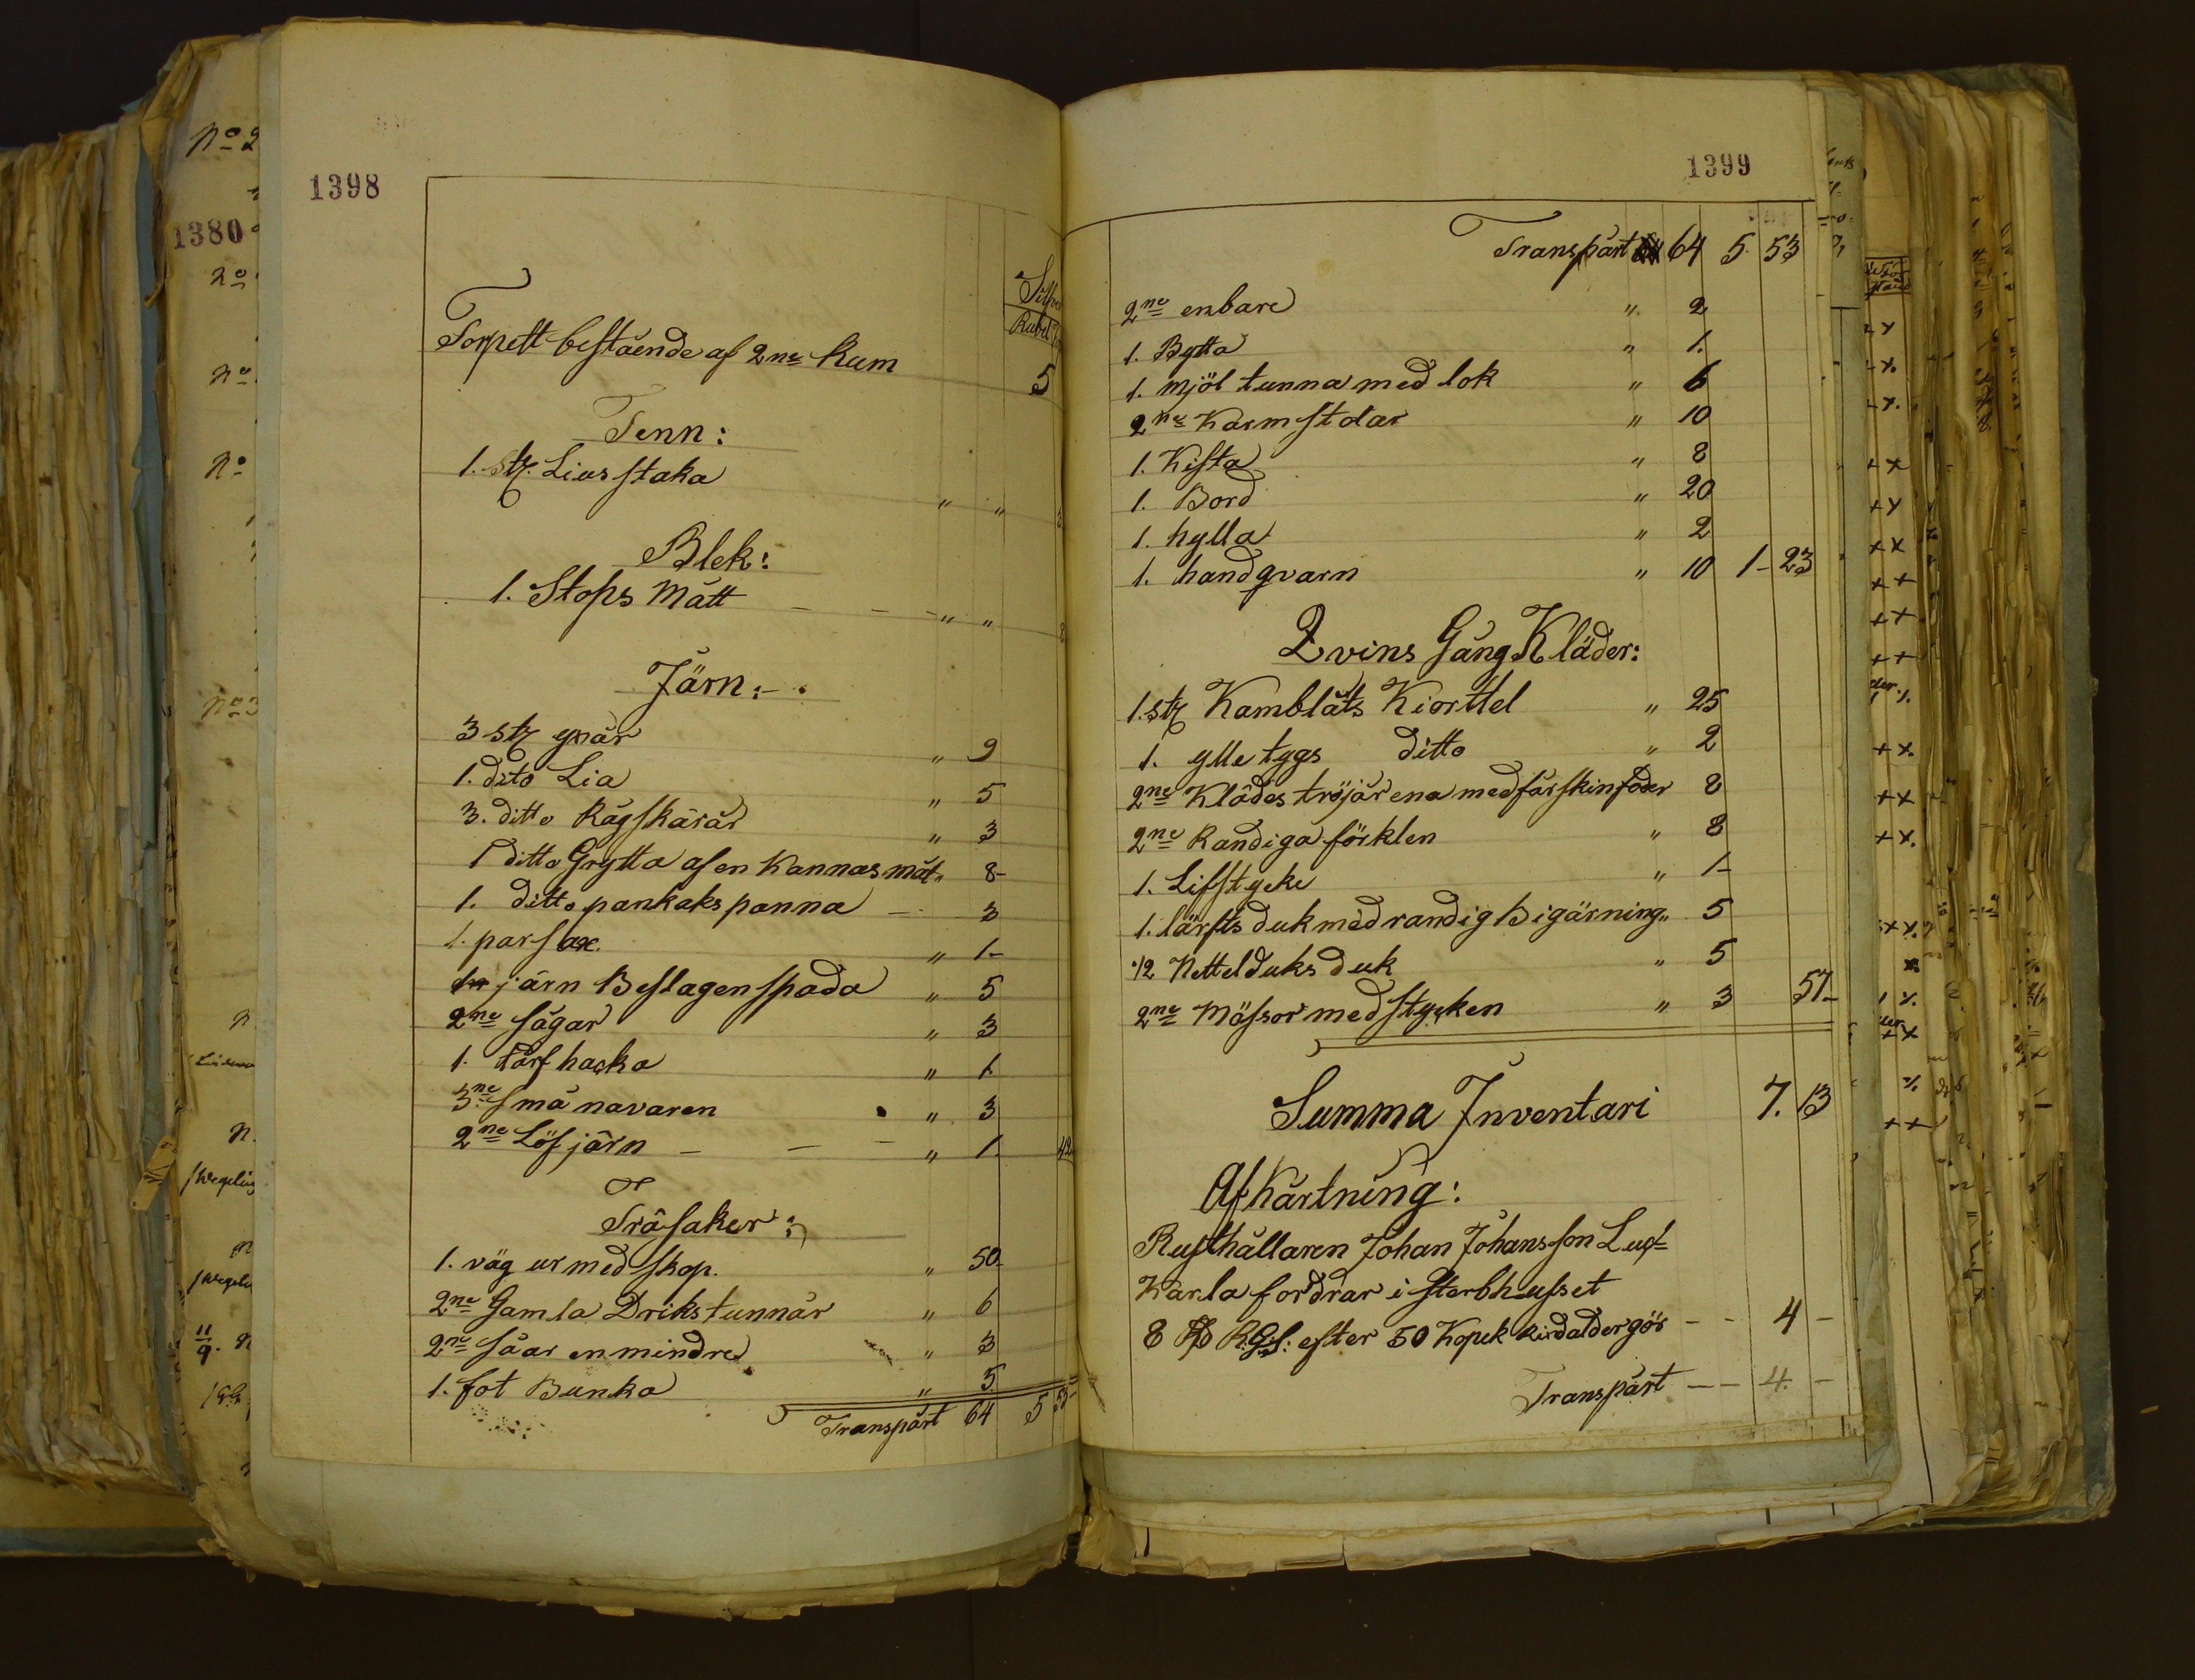 1398
Silfver
Rubel
Torpett bestående af 2ne Rum 5
Tenn:
1. stz. Lius staka " "
Blek:
1. Stops Mått - - - " " 8
Järn:-
3 stz yxår " 9
1. dito Lia " 5
3. ditto Rågskärår " 3
1 ditto Grytta af en Kannas måt " 8-
1. ditto pankaks panna - 3
1. par sax. " 1-
järn Beslagen spada " 5
2ne sågar " 3
1. tårf hacka " 1.
3ne små navaren " 3
2ne Löfjärn - - - " 1 42
Träsaker:
1. väg ur med skop. " 50-
2ne Gamla Drikstunnär " 6
2ne såar en mindre " 3
1. fot Bunka " 5
Transpårt 64 5 53
1399
Transpårt 64 5. 53
2ne enbare " 2
1. Bytta " 1.
1. mjöl tunna med lok " 6
2ne Karmstolar " 10
1. Kista " 8
1. Bord " 20
1. hylla " 2
1. handqvarn " 10 1- 23
Qvins Gång Kläder:
1. stz Kamblåts Kiorttel " 25
1. ylle tygs ditto " 2
2ne Klädes tröjår ena med fårskinfoder 8
2ne Randiga förklen " 8
1. Lifstycke " 1-
1. lärfts duk med randig Bigärning " 5
1/2 Nettelduks duk " 5
2ne Mössor med stycken " 3 57-
Summa Inventari 7. 13
Afkårtning:
Rusthållaren Johan Johansson Lus-
Karla fordrar i sterbhusset
8 R:G:S: efter 50 Kopek gör - - 4 -
Transpårt - - 4. -
1380